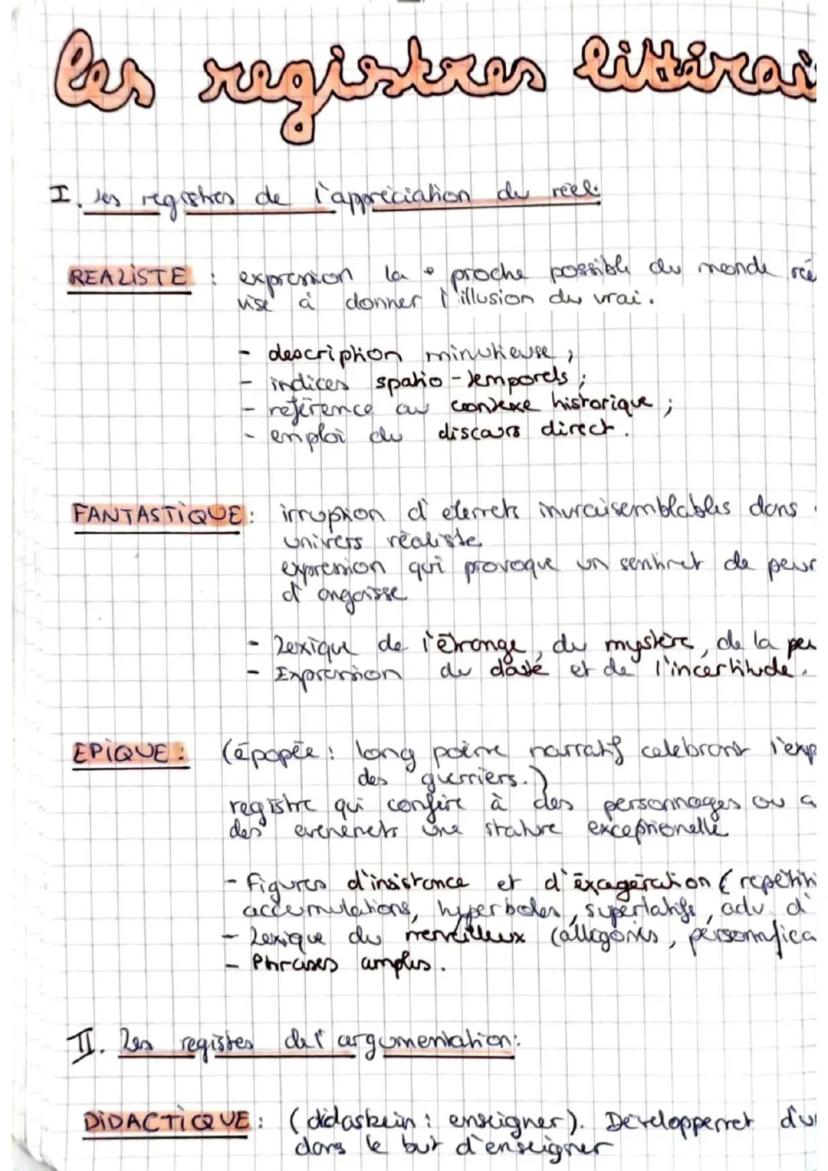 Les registres littérai
I. Les registres de l'appréciation du réel.
REALISTE : expression la + proche possible du monde ré
vise à donner l'illusion du vrai.
- description minutieuse ;
- indices spatio-temporels ;
- reférence au contexe historique ;
- emploi du discours direct.
FANTASTIQUE : irruption d'elemets invraisemblables dans
univers réaliste
expression qui provoque un sentimet de peur
d'angoisse
- Lexique de l'étrange, du mystère, de la peu
- Expression du doute et de l'incertitude.
EPIQUE : (épopée : long poème narratif celebrant l'exp
des guerriers.)
registre qui confère à des personnages ou a
des evenemets une stature exceptionelle
- Figures d'insistance et d'exagération ( repétiti
accumulations, hyperboles, superlatifs, adv. d'
- Lexique du merveilleux (allégories, personnifica
- Phrases amples.
II. Les registes de l'argumentation:
DIDACTIQUE : (didaskein : enseigner). Developpemet d'u
dans le but d'enseigner